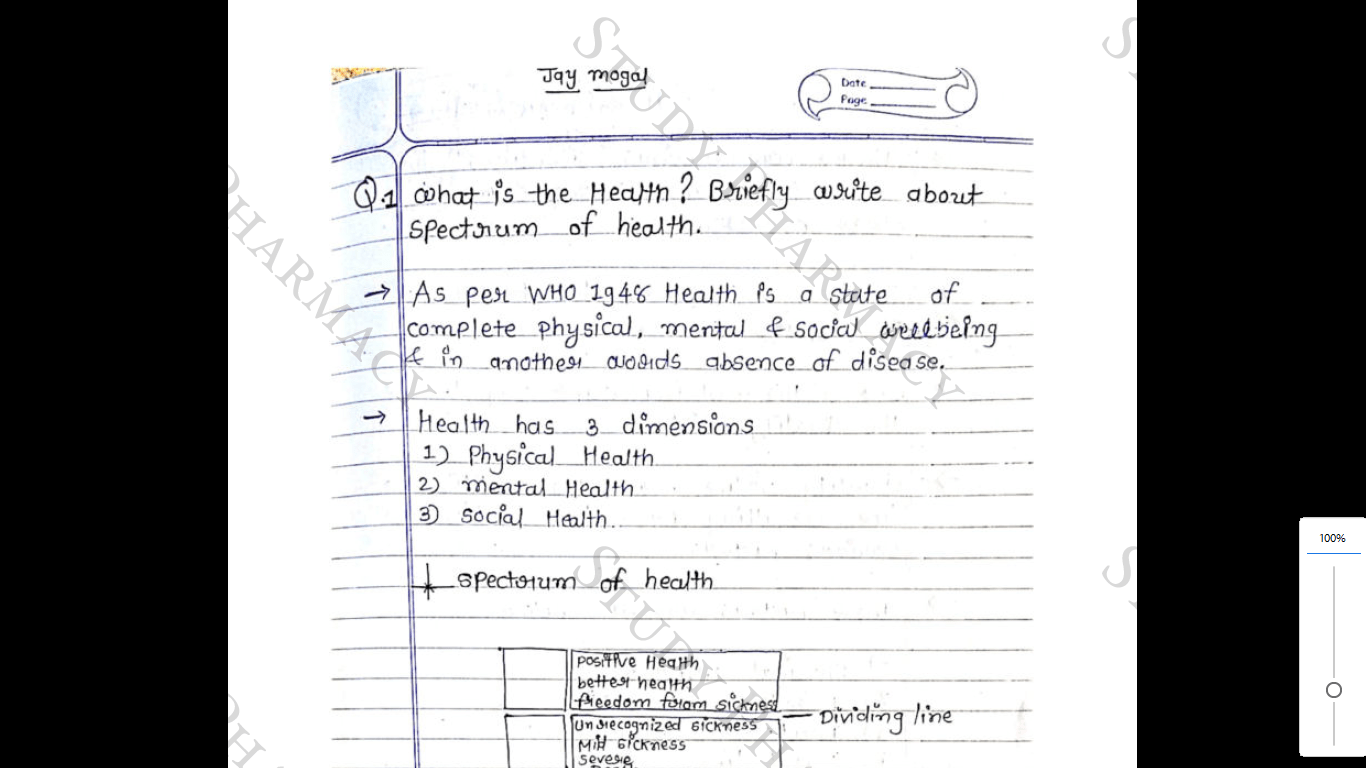 Jay mogal
Date
Page
Q.1 What is the Health? Briefly write about
spectrum of health.
→ As per WHO 1948 Health is a state of
complete physical, mental & social wellbeing
& in another words absence of disease.
→ Health has 3 dimensions
1) Physical Health
2) mental Health
3) social Health.
spectrum of health
positive Health
better health
freedom from sickness
Dividing line
Unrecognized sickness
Mild sickness
severe
STUDY PHARMACY
STUDY PHARMACY
PHARMACY
100%